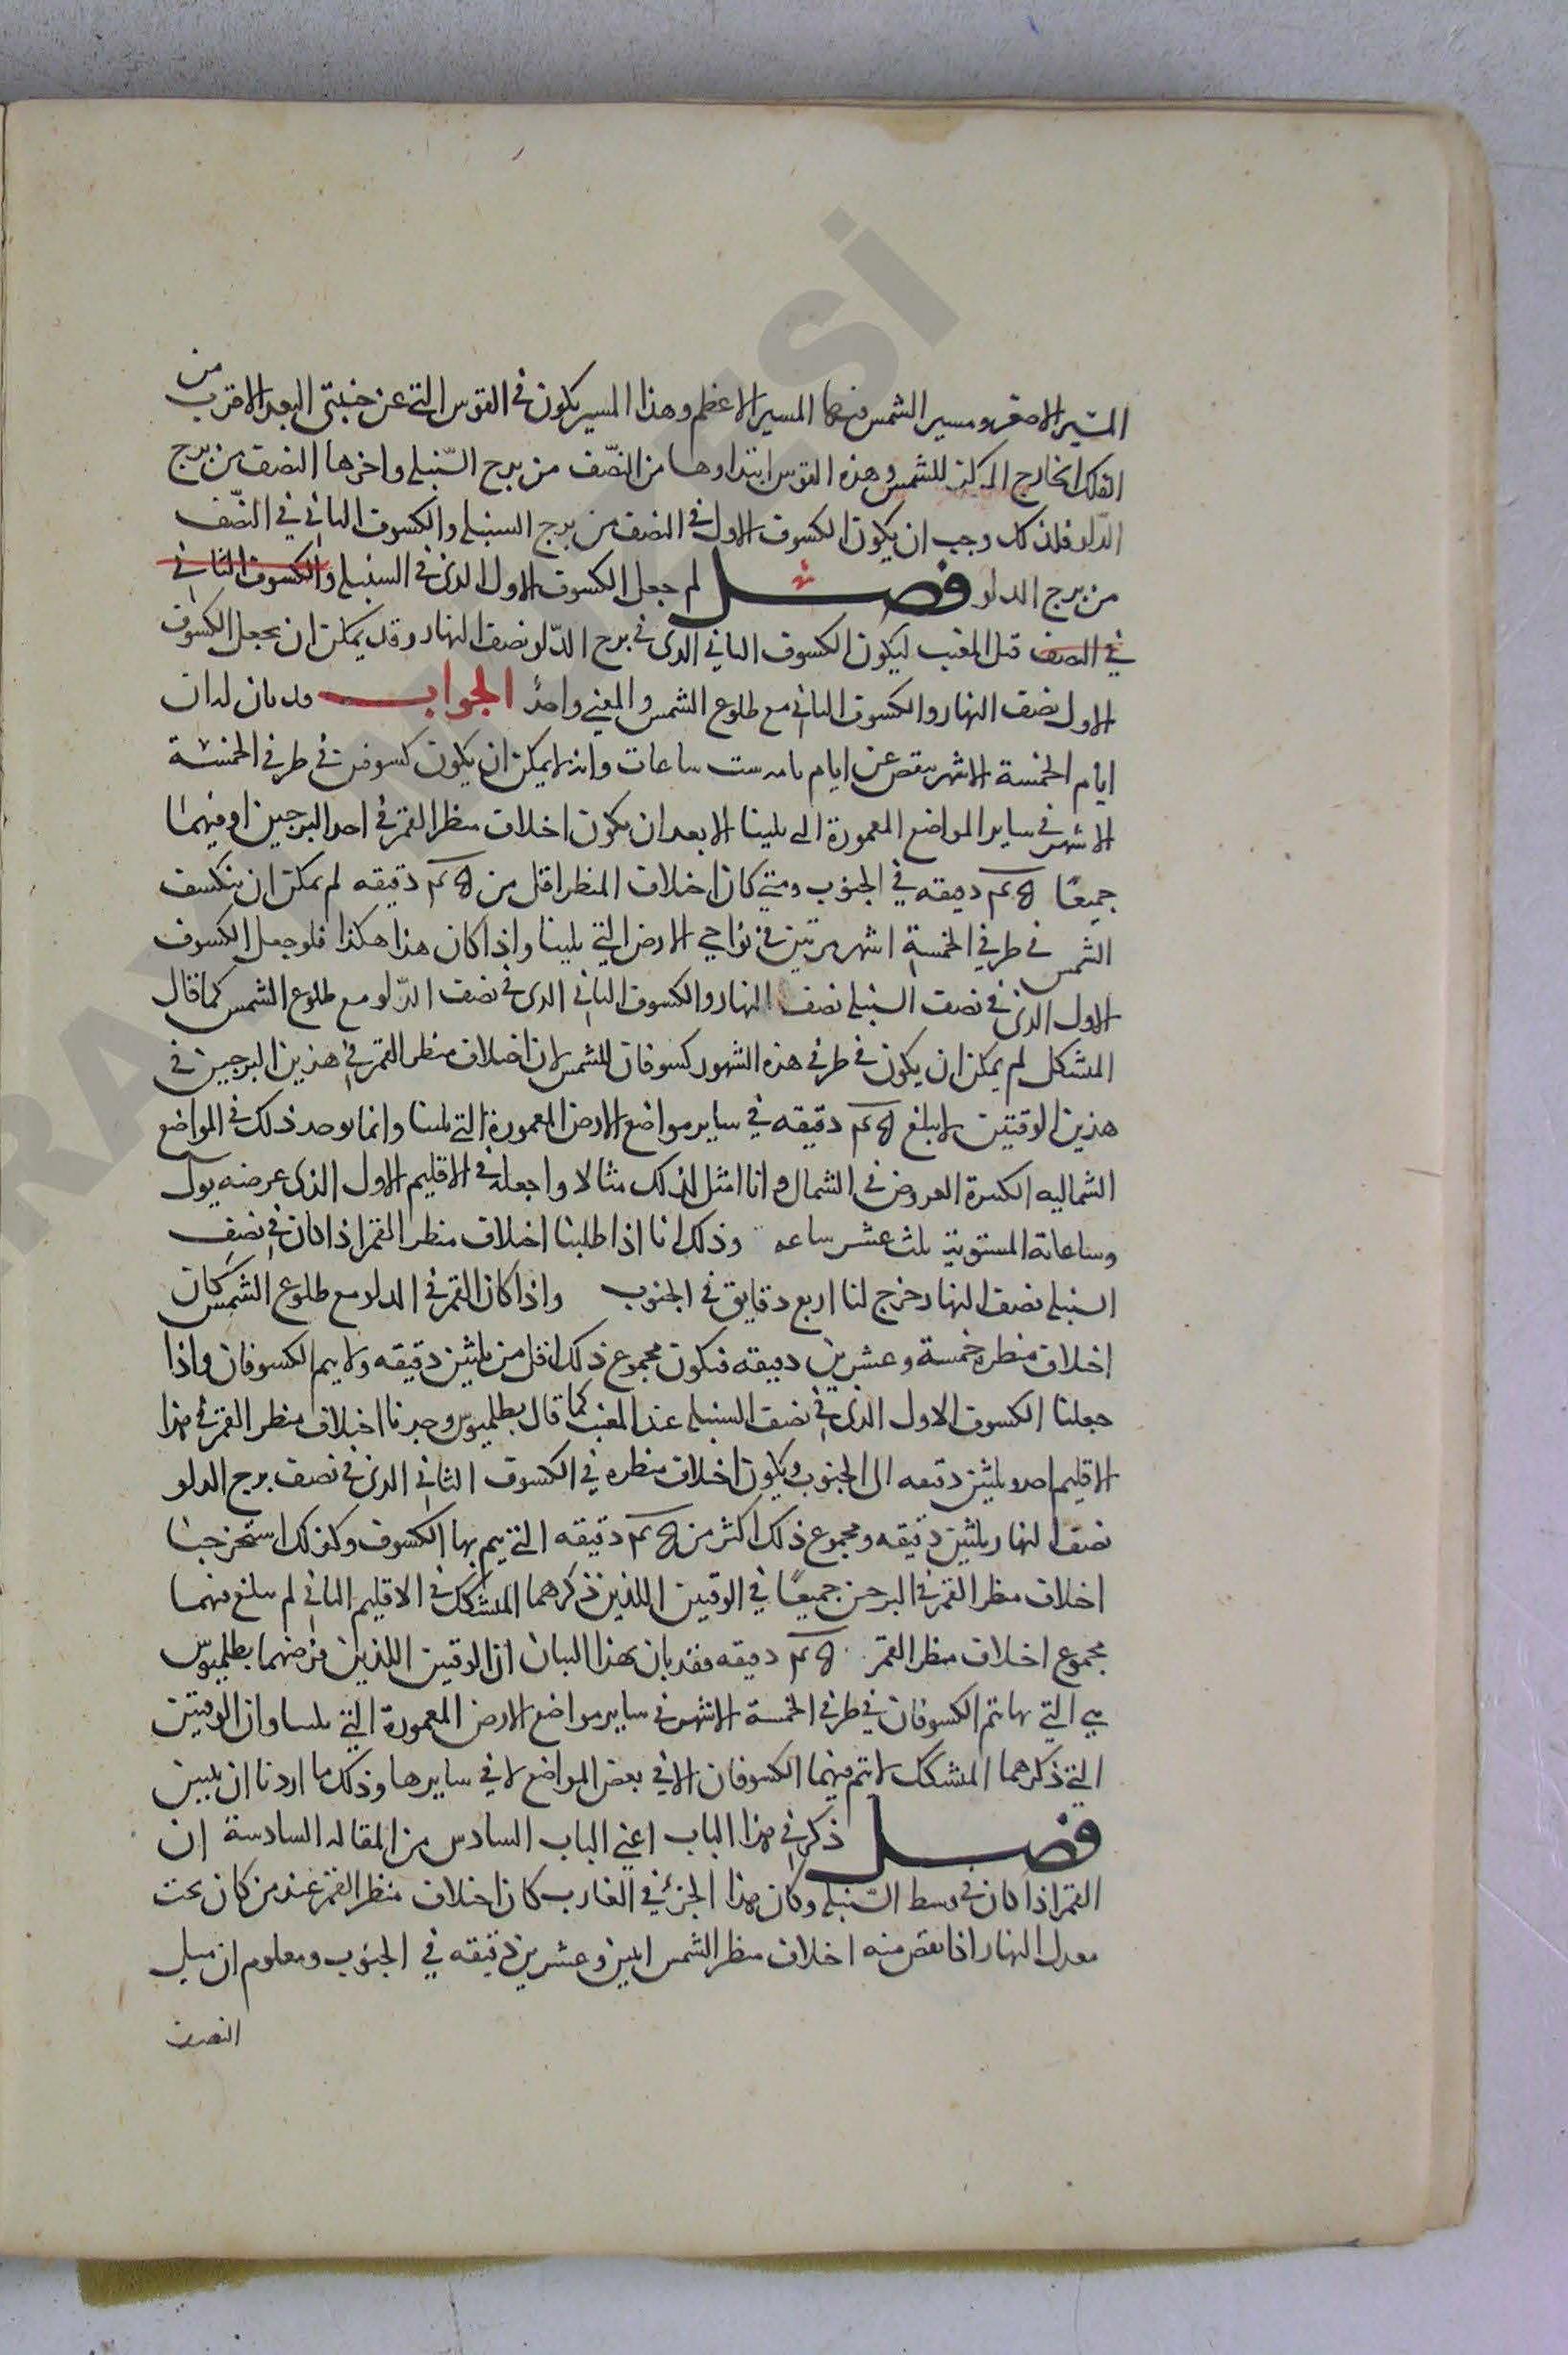 المسير الاصغر ومسير الشمس فيها المسير الاعظم وهذا المسير يكون في القوس التي عن جنبتي البعد الاقرب من
الفلك الخارج المركز للشمس وهذه القوس ابتداوها من النصّف من برج السّنبله واخرها النصف من برج
الدّلو فلذلك وجب ان يكون الكسوف الاول في النصف من برج السنبله والكسوف الثاني في النصّف
من برج الدلو فصل لم جعل الكسوف الاول الذي في السنبله والكسوف الثاني
في النصف قبل المغيب ليكون الكسوف الثاني الذي في برج الدّلو نصف النهار وقد يمكن ان يجعل الكسوف
الاول نصف النهار والكسوف الثاني مع طلوع الشمس والمعني واحد الجواب قد بان لنا ان
ايام الخمسة الاشهر ينقص عن ايام تامه ست ساعات وانه لا يمكن ان يكون كسوفين في طرفي الخمسة
الاشهر في ساير المواضع المعمورة التي تلينا الا بعد ان يكون اختلاف منظر القمر في احد البرجين او فيهما
جميعًا دقيقه في الجنوب ومتي كان اختلاف المنظر اقل من دقيقه لم يمكن ان ينكسف
الشمس في طرفي الخمسة اشهر مرتين في نواحي الارض التي تلينا واذا كان هذا هكذا فلو جعل الكسوف
الاول الذي في نصف السنبله نصف النهار والكسوف الثاني الذي في نصف الدّلو مع طلوع الشمس كما قال
المشكك لم يمكن ان يكون في طرفي هذه الشهور كسوفان للشمس لان اختلاف منظر القمر في هذين البرجين في
هذين الوقتين لا يبلغ دقيقه في ساير مواضع الارض المعمورة التي تلينا وانما يوجد ذلك في المواضع
الشماليه الكثيرة العروض في الشمال وانا امثل لذلك مثالا واجعله في الاقليم الاول الذي عرضه
وساعاته المستوية ثلث عشر ساعه وذلك انا اذا طلبنا اختلاف منظر القمر اذا كان في نصف
السنبله نصف النهار خرج لنا اربع دقايق في الجنوب واذا كان القمر في الدلو مع طلوع الشمس كان
اختلاف منظره خمسة وعشرين دقيقه فيكون مجموع ذلك اقل من ثلثين دقيقه ولا يتم الكسوفان واذا
جعلنا الكسوف الاول الذي في نصف السنبله عند المغيب كما قال بطلميوس وجدنا اختلاف منظر القمر في هذا
الاقليم احد وثلثين دقيقه الى الجنوب ويكون اختلاف منظره في الكسوف الثاني الذي في نصف برج الدلو
نصف النهار ثلثين دقيقه ومجموع ذلك اكثر من دقيقه التي يتم بها الكسوف وكذلك استخرجنا
اختلاف منظر القمر في البرجين جميعًا في الوقتين اللذين ذكرهما المشكك في الاقليم الثاني لم يبلغ فيهما
مجموع اختلاف منظر القمر دقيقه فقد بان بهذا البيان ان الوقتين اللذين فرضهما بطلميوس
هي التي بها يتم الكسوفان في طرفي الخمسة الاشهر في ساير مواضع الارض المعمورة التي تلينا وان الوقتين
التي ذكرهما المشكك لا يتم فيهما الكسوفان الا في بعض المواضع لا في سايرها وذلك ما اردنا ان نبين
فصل ذكر في هذا الباب اعني الباب السادس من المقاله السادسة ان
القمر اذا كان في وسط السّنبله وكان هذا الجزء في الغارب كان اختلاف منظر القمر عند من كان تحت
معدل النهار اذا نقص منه اختلاف منظر الشمس اثنين وعشرين دقيقه في الجنوب ومعلوم ان ميل
النصف